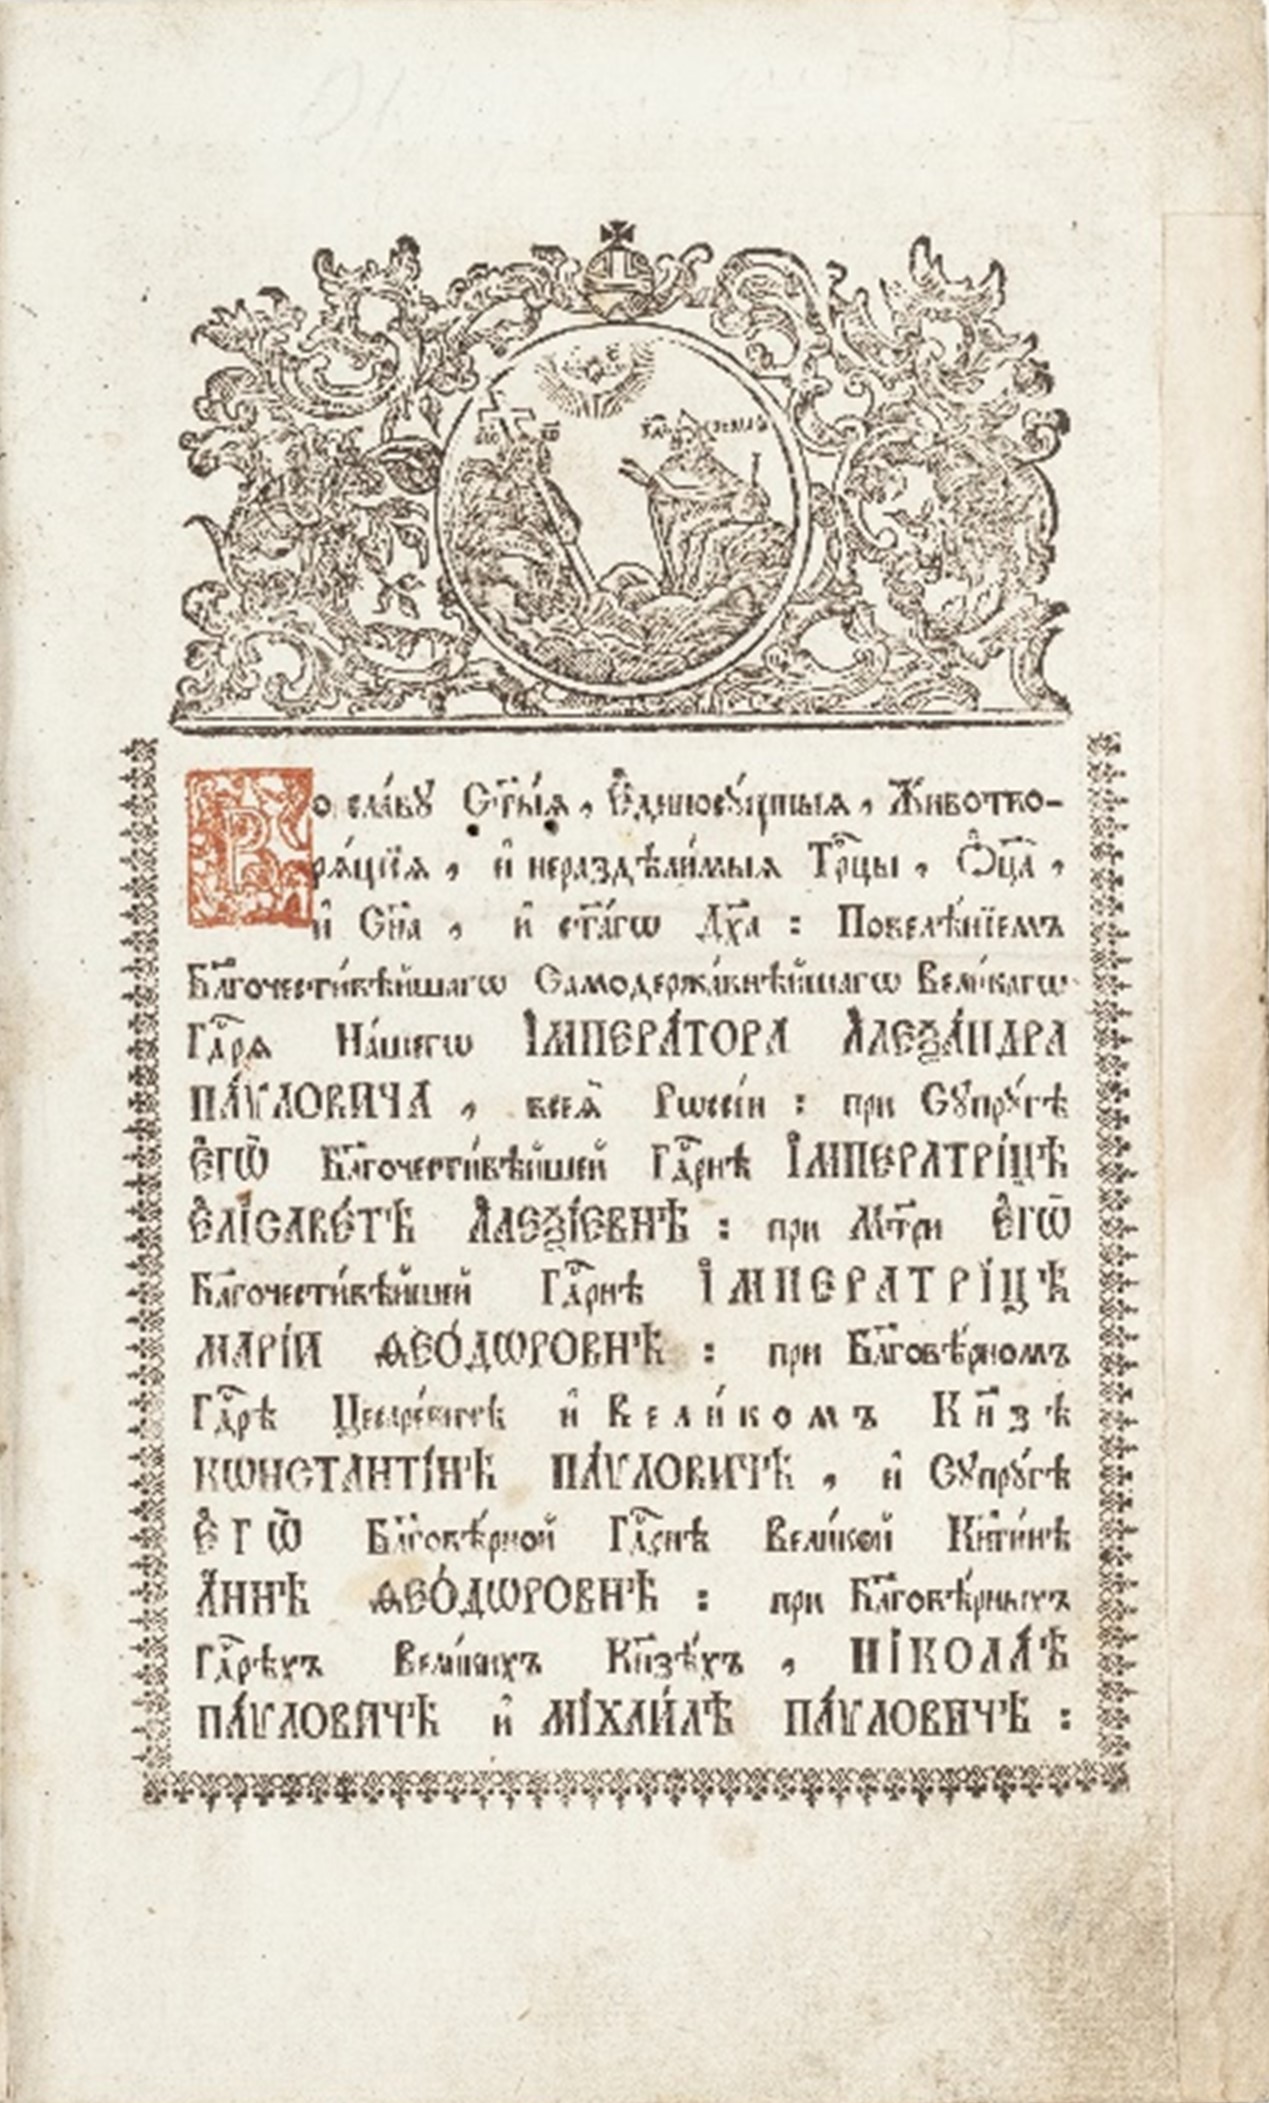 Во сла́вꙋ Ст҃ы́ѧ , Є҆диносꙋ́щныѧ , Животво-
рѧ́щїѧ , и҆ нераздѣли́мыѧ Трⷪ҇цы , Ѻ҆ц҃а̀ ,
и҆ Сн҃а , и҆ ст҃а́гѡ Дх҃а : Повелѣ́нїемъ
Бл҃гочести́вѣйшагѡ Самодержа́внѣйшагѡ Вели́кагѡ
Гдⷭ҇рѧ На́шегѡ І҆МПЕРА́ТОРА А҆ЛЕѮА́НДРА
ПА́ѴЛОВИЧА , всеѧ̀ Рѡссі́и : при Сꙋпрꙋ́гѣ
Є҆ГѠ̀ Бл҃гочести́вѣйшей Гдⷭ҇рнѣ І҆МПЕРАТРІ́ЦѢ
Є҆ЛІСАВЕ́ТѢ А҆ЛЕѮІ́ЕВНѢ : при Мт҃ри Є҆ГѠ̀
Бл҃гочести́вѣйшей Гдⷭ҇рнѣ І҆МПЕРАТРІ́ЦѢ
МАРІ́И ѲЕО́ДѠРОВНѢ : при Бл҃говѣ́рномъ
Гдⷭ҇рѣ Цесаре́вичѣ и҆ Вели́комъ Кн҃зѣ
КѠНСТАНТІ́НѢ ПА́ѴЛОВИЧѢ , и҆ Сꙋпрꙋ́гѣ
Є҆ГѠ̀ Бл҃говѣ́рной Гдⷭ҇рнѣ Вели́кой Кнг҃и́нѣ
А҆́ННѢ ѲЕО́ДѠРОВНѢ : при Бл҃говѣ́рныхъ
Гдⷭ҇рѣхъ Вели́кихъ Кн҃зѣ́хъ , НІКОЛА́Ѣ
ПА́ѴЛОВИЧѢ и҆ МІХАИ́ЛѢ ПА́ѴЛОВИЧѢ :